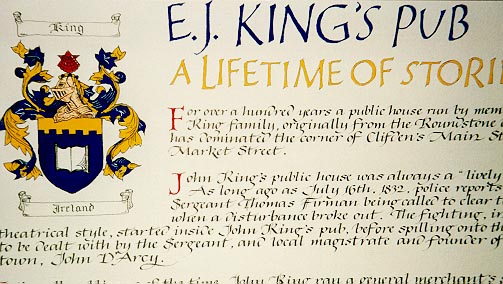 King
E.J. KING'S PUB
A LIFETIME OF STORI
For over a hundred years a public house run by mem
King family, originally from the Roundstone
has dominated the corner of Clifden's Main St
Market Street.
John King's public house was always a "lively
As long ago as July 16th, 1832, police reports
Sergeant Thomas Firman being called to clear t
when a disturbance broke out. The fighting, in
theatrical style, started inside John King's pub, before spilling onto th
to be dealt with by the Sergeant, and local magistrate and founder of
town, John D'Arcy.
of the time, John King ran a general merchant's
Ireland